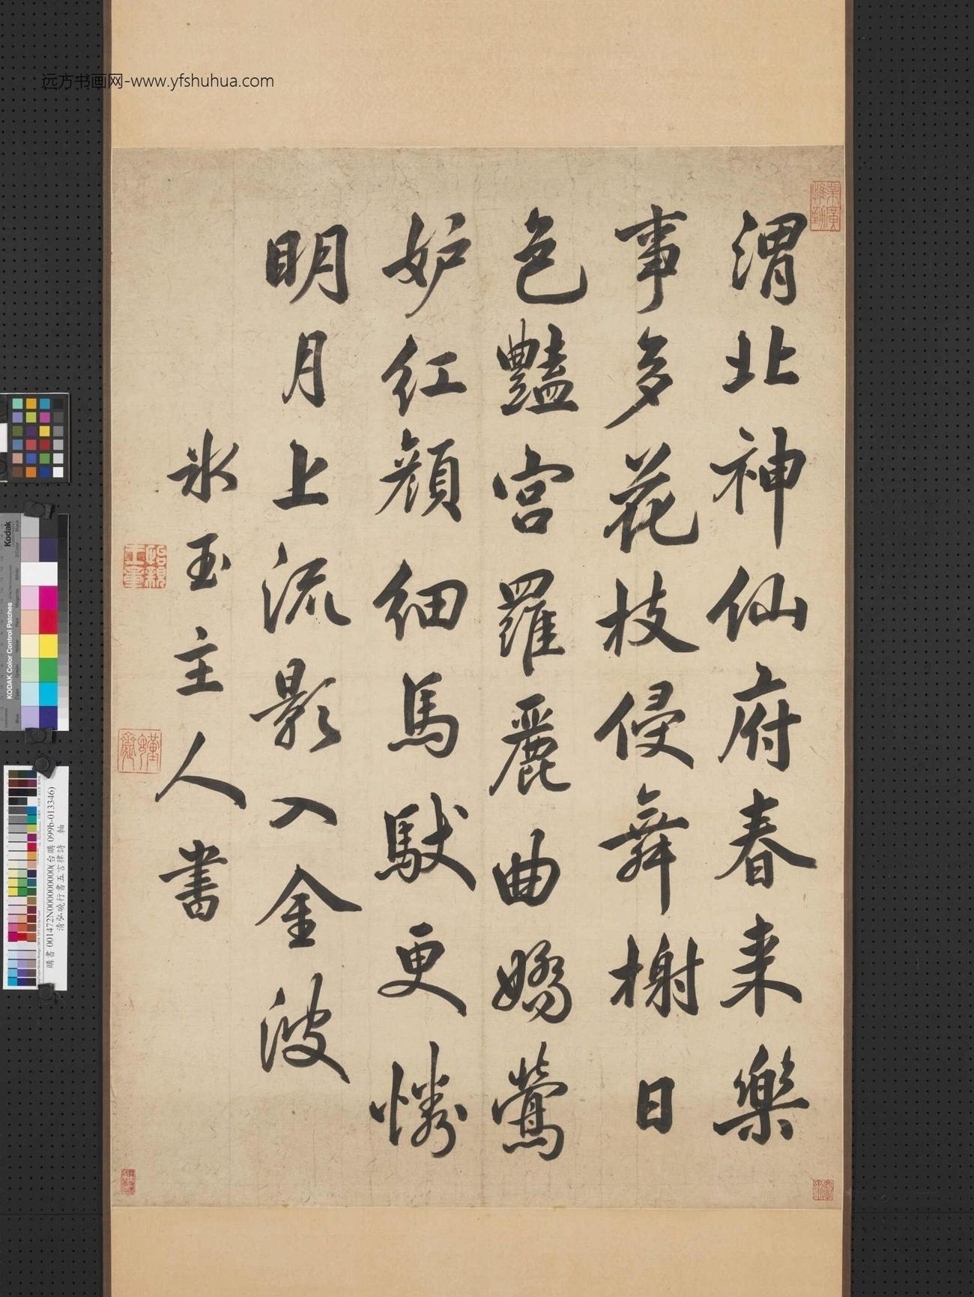 远方书画网-www.yfshuhua.com
渭北神仙府春来樂
事多花枝侵舞榭日
色豔宮羅麗曲嬌鶯
妒红顏細馬馱更憐
明月上流影入金波
冰玉主人書
Kodak
KODAK Color Control Patches
購書 001472N000000000(台購 099b-013346)
清弘曉行書五言律詩 軸